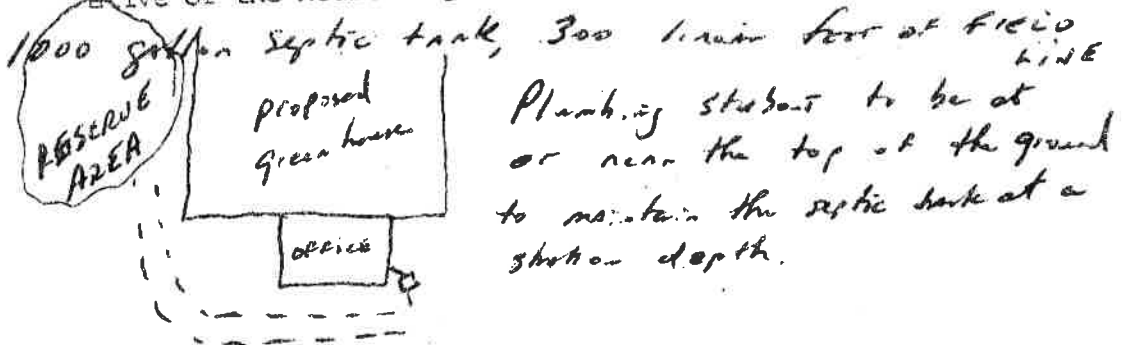 1000 gallon septic tank, 300 linear feet of FIELD
LINE
RESERVE
AREA
proposed
green house
OFFICE
Plumbing stubout to be at
or near the top of the ground
to maintain the septic tank at a
shallow depth.